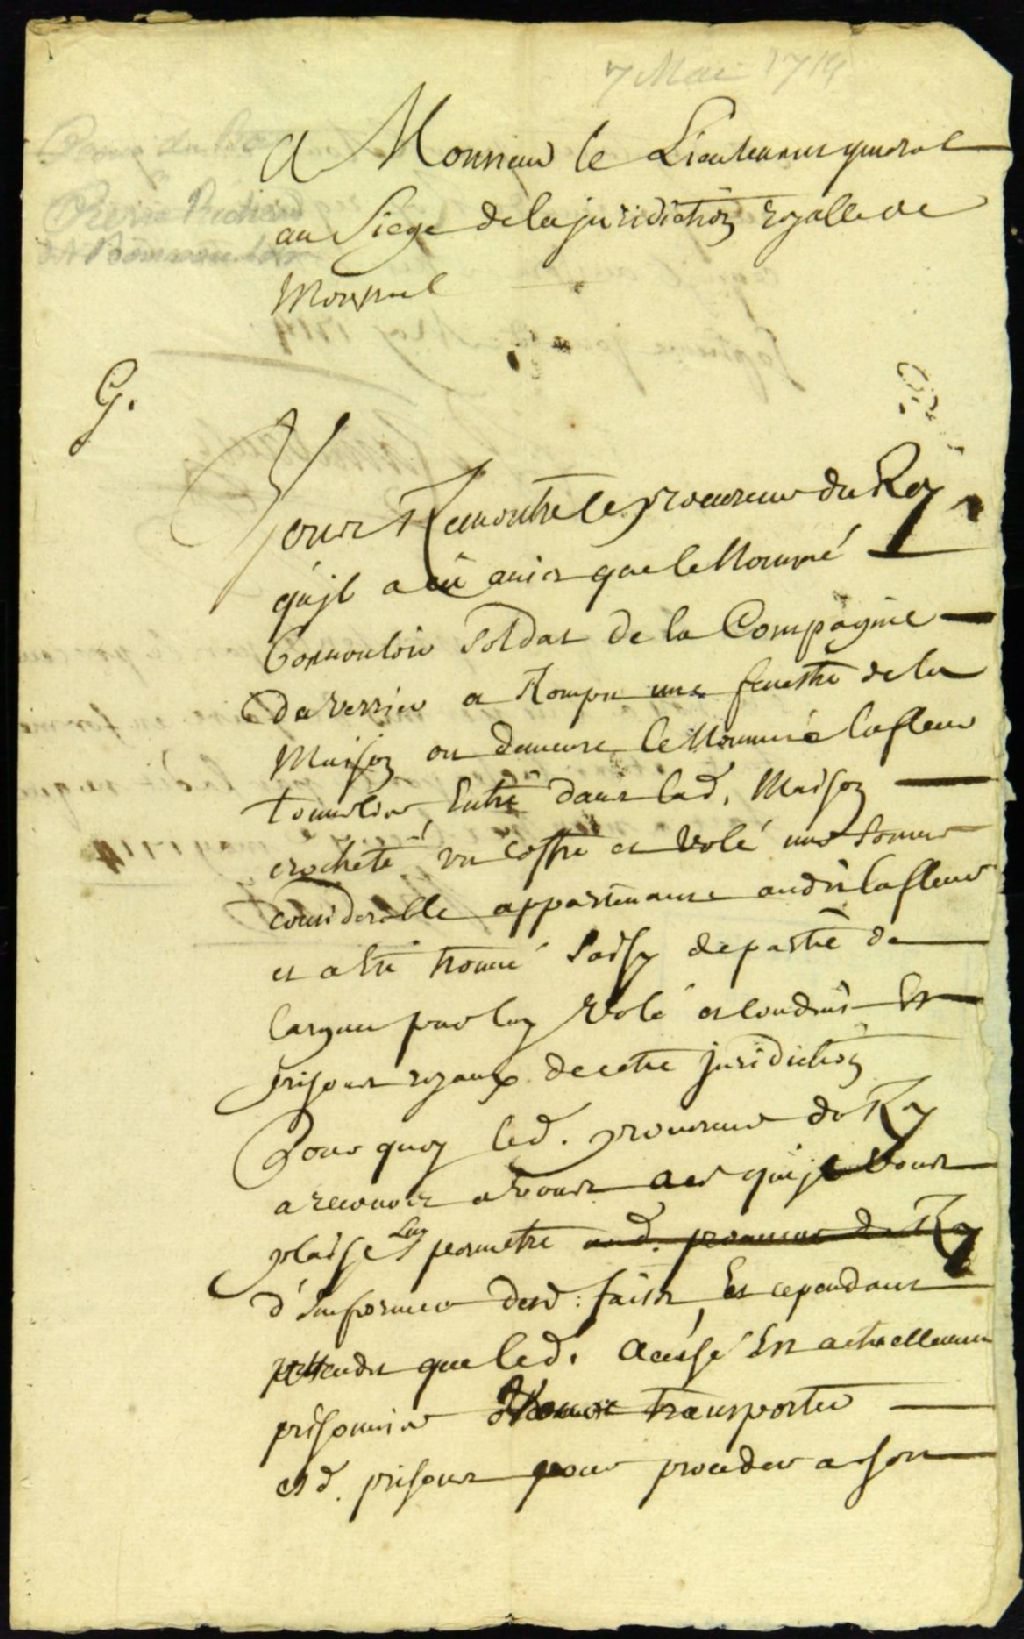 7 Mai 1714
A Monsieur le Lieutenant general
au Siege de la juridiction royalle de
Montreal
G.
Vous Remontre le procureur du Roy
qu'jl a eü auis que le Nommé
Bonuouloir Soldat de la Compagnie
a Rompu une fenestre de la
Maison ou demeure le Nommé lafleur
tonnelier, Entré dans lad. Maison
crocheté vn coffre et volé une Somme
considerable appartenante audit lafleur
et a été trouué Saisy de partie de
largent par luy Volé et conduit Es
prisons royaux de cette juridiction
Pour quoy led. procureur du Roy
a recours a vous a ce qu'jl vous
plaise Luy permettre aud. procureur du Roy
d'Informer desd: faits, Et cependant
attendu que led. accusé Est actuellement
prisonnier transporter
esd. prisons pour proceder a son